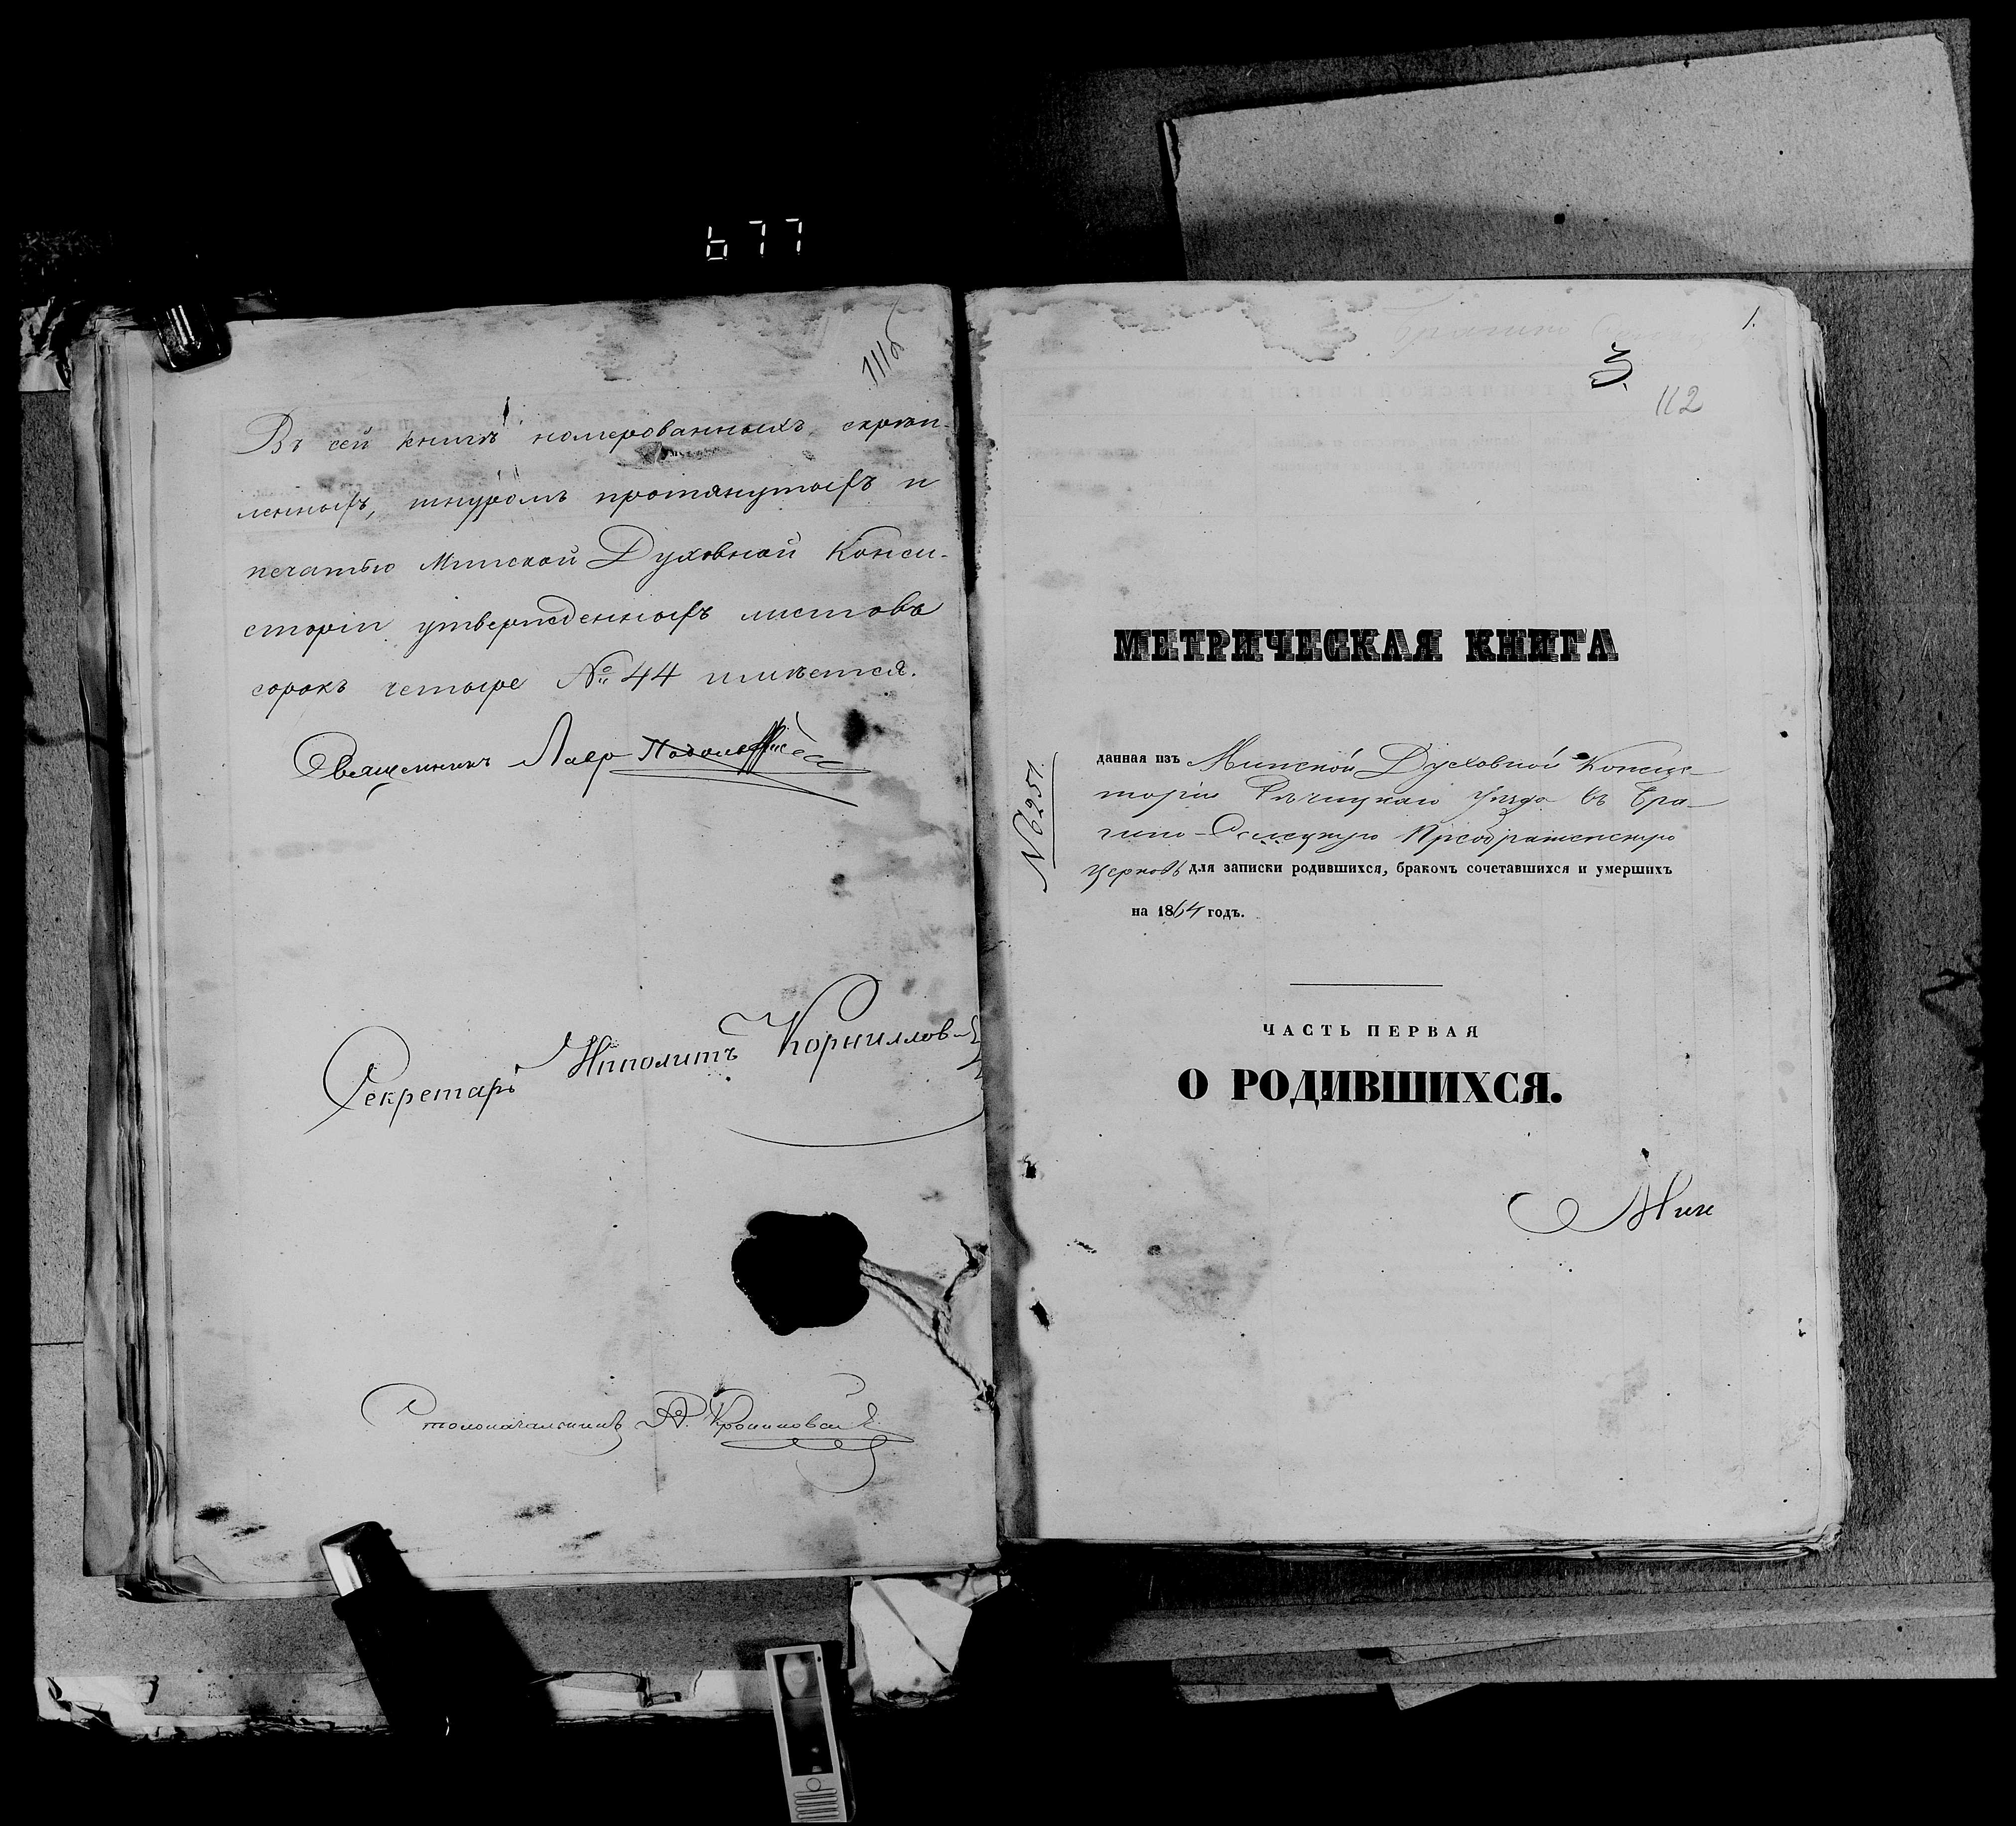 677
111об
Въ сей книгѣ номерованныхъ, скрѣп-
ленныхъ, шнуромъ протянутыхъ и
печатью Минской Духовной Конси-
сторіи утвержденныхъ листовъ
сорокъ четыре № 44 имѣется.
Священникъ Лавр
Секретарь Ипполитъ Корниллович
Столоначальникъ А.
1.
3.
112
МЕТРИЧЕСКАЯ КНИГА
№ 6251.
данная изъ Минской Духовной Консис-
торіи Рѣчицкаго уѣзда въ Бра-
гино-Селецкую Преображенскую
церковь для записки родившихся, бракомъ сочетавшихся и умершихъ
на 1864 годъ.
ЧАСТЬ ПЕРВАЯ
О РОДИВШИХСЯ.
Мин